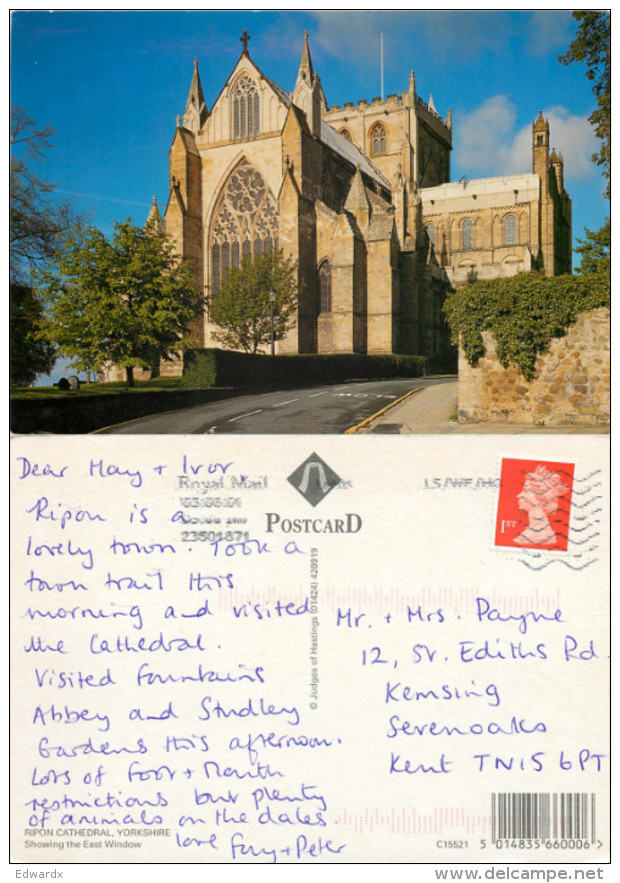 Dear May + Ivor,
Ripon is a
lovely town. Took a
town trail this
morning and visited
the Cathedral.
Visited Fountains
Abbey and Studley
Gardens this afternoon.
Lots of Foot + Mouth
restrictions but plenty
of animals on the dales.
love + Peter
RIPON CATHEDRAL, YORKSHIRE
Showing the East Window
Royal Mail
03/05/01
23501871
POSTCARD
© Judges of Hastings (01424) 420919
1ST
Mr. + Mrs. Payne
12, St. Ediths Rd.
Kemsing
Sevenoaks
Kent TN15 6PT
C15521
5 014835 660006
Edwardx
www.delcampe.net